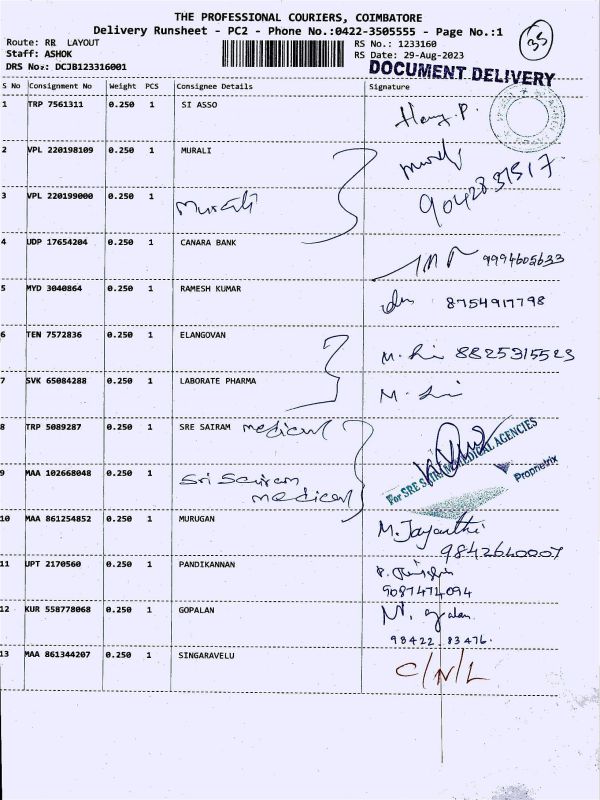 THE PROFESSIONAL COURIERS, COIMBATORE
Delivery Runsheet - PC2 - Phone No.:0422-3505555 - Page No.:1
35
Route: RR LAYOUT
RS No.: 1233160
Staff: ASHOK
RS Date: 29-Aug-2023
DRS No.: DCJB123316001
DOCUMENT DELIVERY
S No Consignment No Weight PCS Consignee Details Signature
1 TRP 7561311 0.250 1 SI ASSO
2 VPL 220198109 0.250 1 MURALI Murali
9042831517
3 VPL 220199000 0.250 1 Murali
4 UDP 17654204 0.250 1 CANARA BANK 9994605633
5 MYD 3040864 0.250 1 RAMESH KUMAR 8754917798
6 TEN 7572836 0.250 1 ELANGOVAN 8825315523
7 SVK 65084288 0.250 1 LABORATE PHARMA
8 TRP 5089287 0.250 1 SRE SAIRAM medical
For SRE SAIRAM MEDICAL AGENCIES
Proprietrix
9 MAA 102668048 0.250 1 Sri Sairam
medical
10 MAA 861254852 0.250 1 MURUGAN M. Jayanthi
9842640007
11 UPT 2170560 0.250 1 PANDIKANNAN
9087474094
12 KUR 558778068 0.250 1 GOPALAN
98422 83476
13 MAA 861344207 0.250 1 SINGARAVELU C/N/L